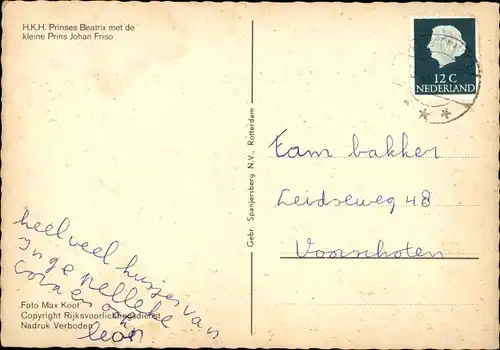 H.K.H. Prinses Beatrix met de
kleine Prins Johan Friso
12 C
NEDERLAND
Gebr. Spanjersberg N.V., Rotterdam
Fam bakker
Leidseweg 48
Voorschoten
heel veel kusjes van
Inge
Cora en
leon
Foto Max Koot
Copyright Rijksvoorlichtingsdienst
Nadruk Verboden